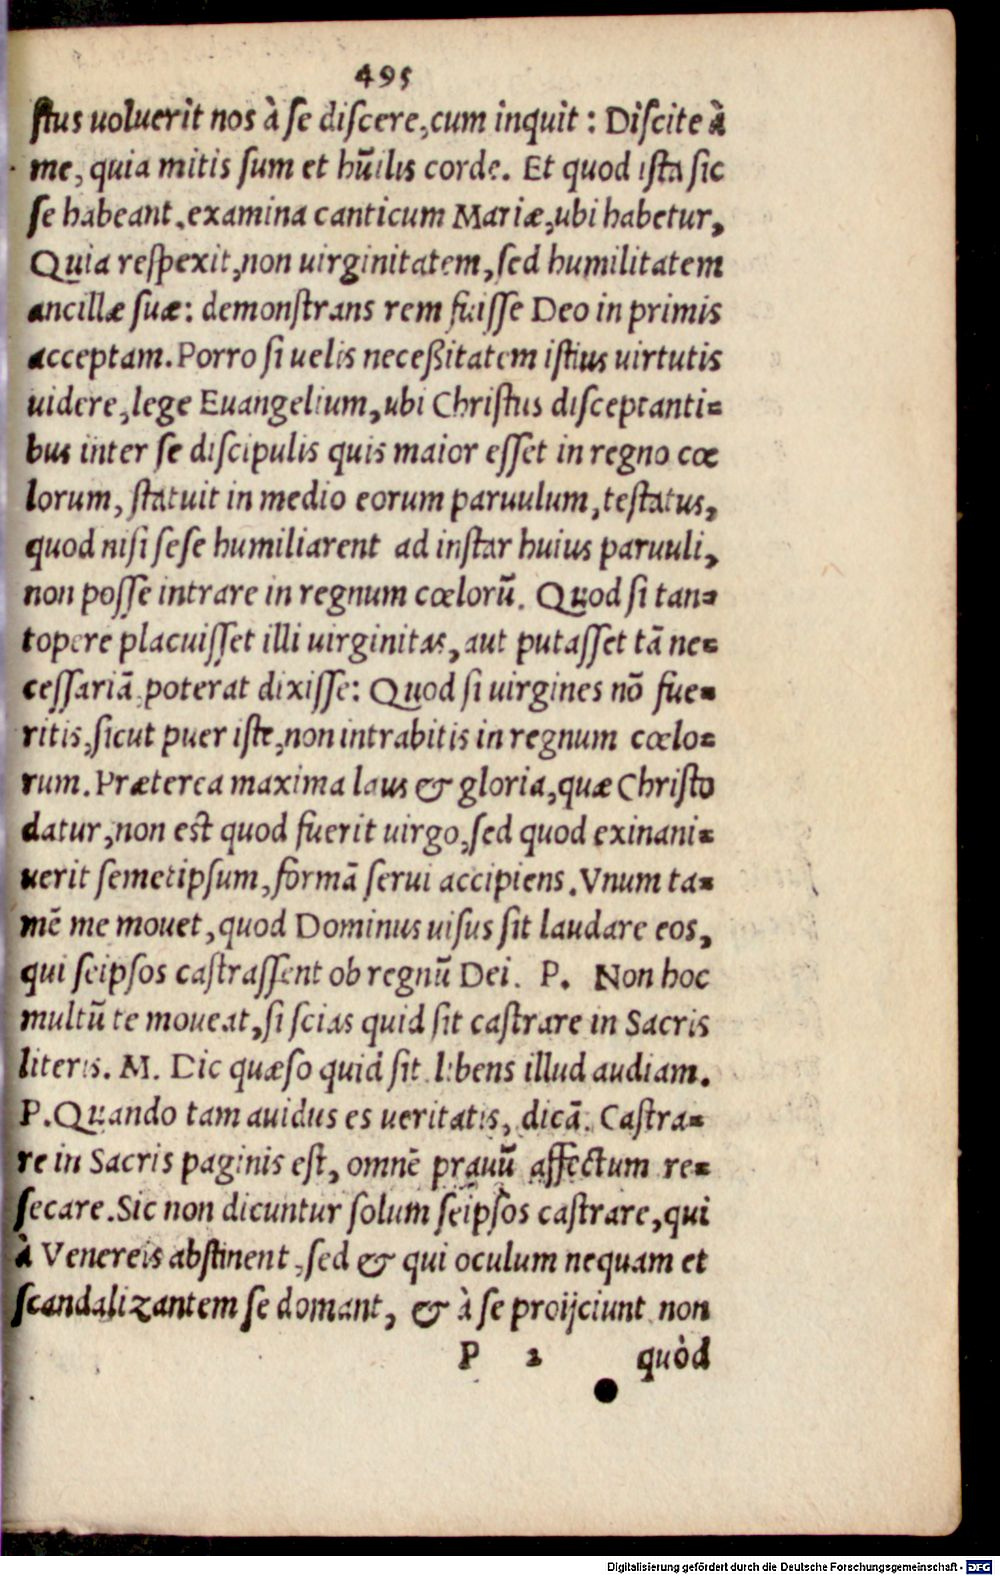 495
ſtus uoluerit nos à ſe diſcere, cum inquit : Diſcite à
me, quia mitis ſum et hūilis corde. Et quod iſta ſic
ſe habeant, examina canticum Mariæ, ubi habetur,
Quia reſpexit, non uirginitatem, ſed humilitatem
ancillæ ſuæ: demonſtrans rem fuiſſe Deo in primis
acceptam. Porro ſi uelis neceßitatem iſtius uirtutis
uidere, lege Euangelium, ubi Chriſtus diſceptanti=
bus inter ſe diſcipulis quis maior eſſet in regno cœ
lorum, ſtatuit in medio eorum paruulum, teſtatus,
quod niſi ſeſe humiliarent ad inſtar huius paruuli,
non poſſe intrare in regnum cœlorū. Quod ſi tan=
topere placuiſſet illi uirginitas, aut putaſſet tā ne=
ceſſariā, poterat dixiſſe: Quod ſi uirgines nō fue=
ritis, ſicut puer iſte, non intrabitis in regnum cœlo=
rum. Præterea maxima laus & gloria, quæ Chriſto
datur, non eſt quod fuerit uirgo, ſed quod exinani=
uerit ſemetipſum, formā ſerui accipiens. Vnum ta=
mē me mouet, quod Dominus uiſus ſit laudare eos,
qui ſeipſos caſtraſſent ob regnū Dei. P. Non hoc
multū te moueat, ſi ſcias quid ſit caſtrare in Sacris
literis. M. Dic quæſo quid ſit, libens illud audiam.
P. Quando tam auidus es ueritatis, dicā. Caſtra=
re in Sacris paginis eſt, omnē prauū affectum re=
ſecare. Sic non dicuntur ſolum ſeipſos caſtrare, qui
à Venereis abſtinent, ſed & qui oculum nequam et
ſcandalizantem ſe domant, & à ſe proijciunt non
P 2 quòd
Digitalisierung gefördert durch die Deutsche Forschungsgemeinschaft - DFG